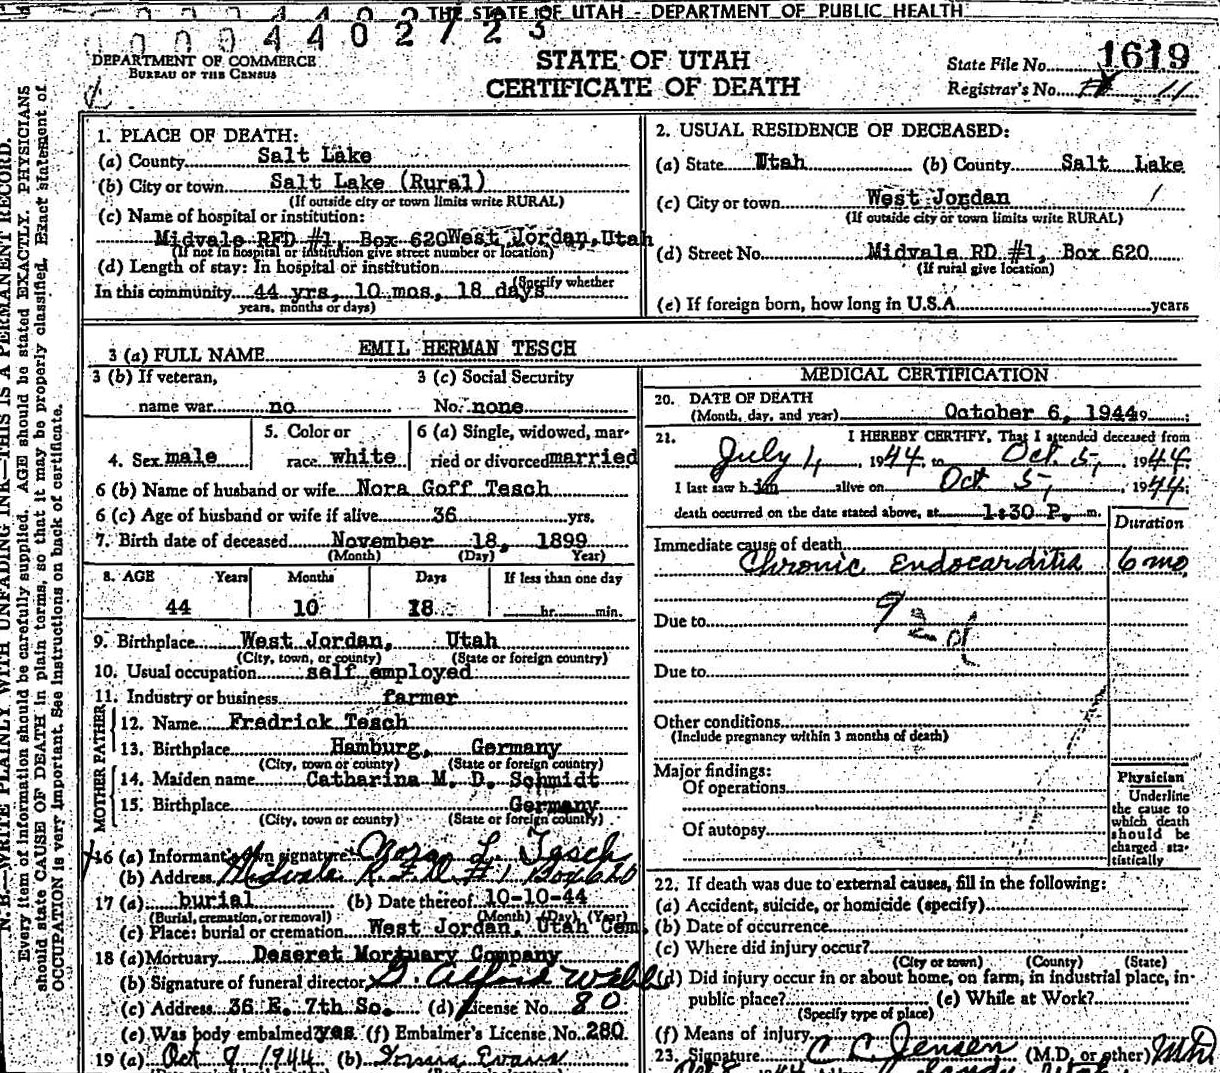 THE STATE OF UTAH - DEPARTMENT OF PUBLIC HEALTH
0 0 0 4 4 0 2 7 2 5
DEPARTMENT OF COMMERCE
BUREAU OF THE CENSUS
STATE OF UTAH
CERTIFICATE OF DEATH
State File No. 1619
Registrar's No. 11
N.B.—WRITE PLAINLY WITH UNFADING INK—THIS IS A PERMANENT RECORD.
Every item of information should be carefully supplied. AGE should be stated EXACTLY. PHYSICIANS
should state CAUSE OF DEATH in plain terms, so that it may be properly classified. Exact statement of
OCCUPATION is very important. See instructions on back of certificate.
1. PLACE OF DEATH:
(a) County Salt Lake
(b) City or town Salt Lake (Rural)
(If outside city or town limits write RURAL)
(c) Name of hospital or institution:
Midvale RFD #1, Box 620 West Jordan, Utah
(If not in hospital or institution give street number or location)
(d) Length of stay: In hospital or institution
(Specify whether
In this community 44 yrs, 10 mos, 18 days
years, months or days)
2. USUAL RESIDENCE OF DECEASED:
(a) State Utah (b) County Salt Lake
(c) City or town West Jordan
(If outside city or town limits write RURAL)
(d) Street No. Midvale RD #1, Box 620
(If rural give location)
(e) If foreign born, how long in U.S.A. years
3 (a) FULL NAME EMIL HERMAN TESCH
3 (b) If veteran, 3 (c) Social Security
name war no No. none
5. Color or 6 (a) Single, widowed, mar-
4. Sex male race white ried or divorced married
6 (b) Name of husband or wife Nora Goff Tesch
6 (c) Age of husband or wife if alive 36 yrs.
7. Birth date of deceased November 18, 1899
(Month) (Day) Year)
8. AGE Years Months Days If less than one day
44 10 18 hr. min.
9. Birthplace West Jordan, Utah
(City, town, or county) (State or foreign country)
10. Usual occupation self employed
11. Industry or business farmer
FATHER
12. Name Fredrick Tesch
13. Birthplace Hamburg, Germany
(City, town or county) (State or foreign country)
MOTHER
14. Maiden name Catharina M. D. Schmidt
15. Birthplace Germany
(City, town or county) (State or foreign country)
16 (a) Informant's own signature: Nora L. Tesch
(b) Address Midvale R.F.D. #1 Box 620
17 (a) burial (b) Date thereof 10-10-44
(Burial, cremation, or removal) (Month) (Day) (Year)
(c) Place: burial or cremation West Jordan, Utah Cem.
18 (a) Mortuary Deseret Mortuary Company
(b) Signature of funeral director D. Alfred Webb
(c) Address 36 E. 7th So. (d) License No. 80
(e) Was body embalmed? yes (f) Embalmer's License No. 280
19 (a) Oct 9 1944 (b) Evans
MEDICAL CERTIFICATION
20. DATE OF DEATH
(Month, day, and year) October 6, 1944 9
21. I HEREBY CERTIFY, That I attended deceased from
July 4, 1944 to Oct. 5, 1944
I last saw him alive on Oct 5, 1944
death occurred on the date stated above, at 1:30 P. m.
Duration
Immediate cause of death
Chronic Endocarditis 6 mo.
Due to
Due to
Other conditions
(Include pregnancy within 3 months of death)
Major findings:
Of operations
Of autopsy
Physician
Underline
the cause to
which death
should be
charged sta-
tistically
22. If death was due to external causes, fill in the following:
(a) Accident, suicide, or homicide (specify)
(b) Date of occurrence
(c) Where did injury occur?
(City or town) (County) (State)
(d) Did injury occur in or about home, on farm, in industrial place, in-
public place? (e) While at Work?
(Specify type of place)
(f) Means of injury
23. Signature C. C. Jensen (M.D. or other) M.D.